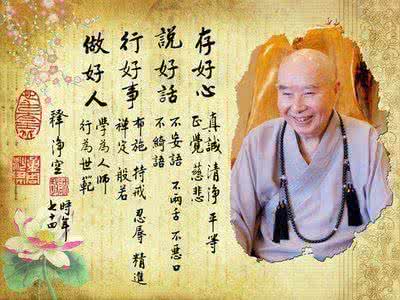 存好心
真誠 清淨 平等
正覺 慈悲
說好話
不妄語 不兩舌 不惡口
不綺語
行好事
布施 持戒 忍辱 精進
禪定 般若
做好人
學為人師
行為世範
時年
七十四
釋淨空